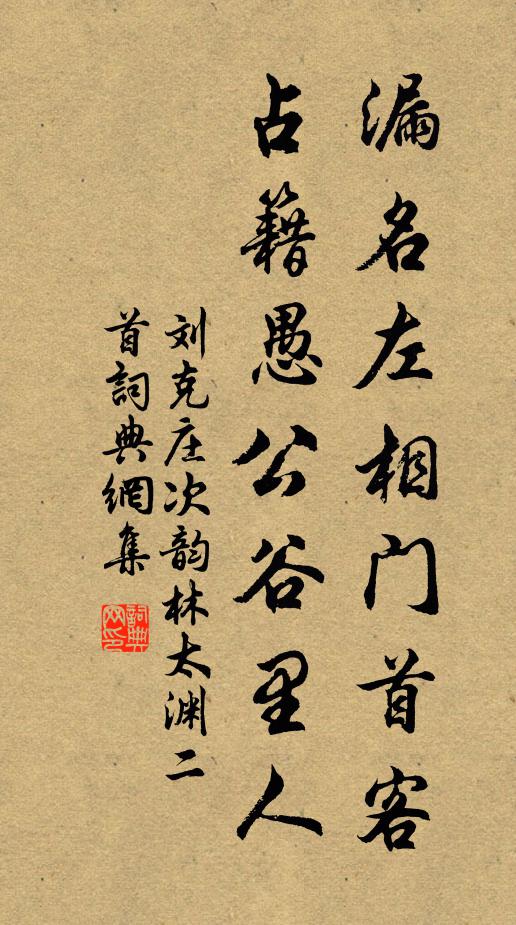 漏名左相门首客
占籍愚公谷里人
刘克庄次韵林太渊二
首詞典網集
詞典网印